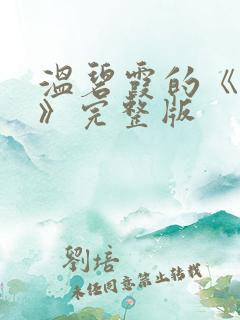 温碧霞的《
》完整版
劉培
未经同意禁止转载